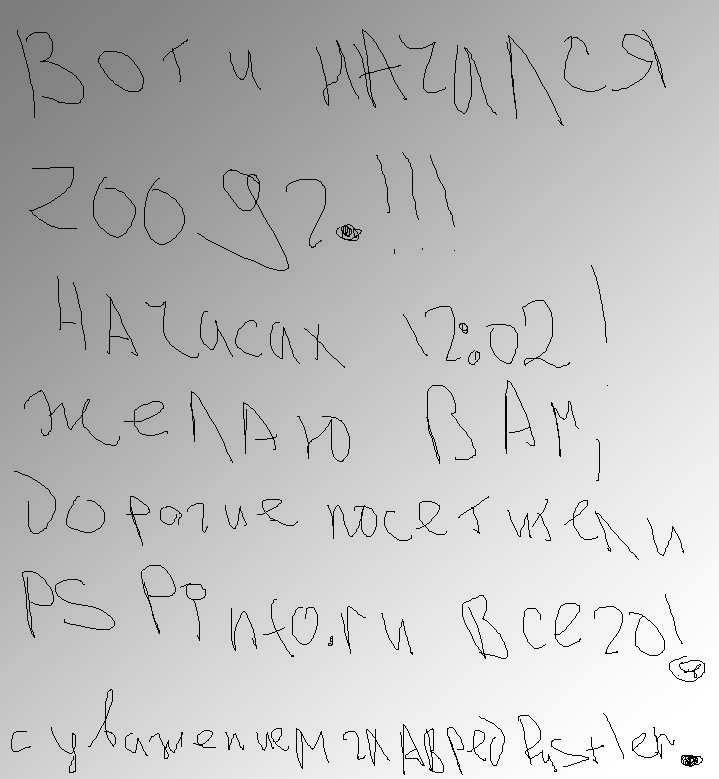 Вот и начался
2009г.!!!
На часах 12:02!
желаю ВАМ,
Дорогие посетители
PSPinfo.ru Всего!
с уважением главред Rustler.